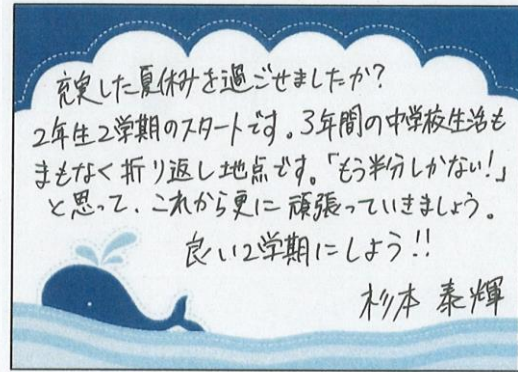 充実した夏休みを過ごせましたか?
2年生2学期のスタートです。3年間の中学校生活も
まもなく折り返し地点です。「もう半分しかない!」
と思って、これから更に頑張っていきましょう。
良い2学期にしよう!!
杉本 泰輝